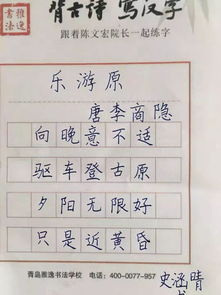 雅逸書法
背古诗 写汉字
跟着陈文宏院长一起练字
乐游原
唐李商隐
向晚意不适
驱车登古原
夕阳无限好
只是近黄昏
青岛雅逸书法学校 电话：400-0077-957
史涵晴